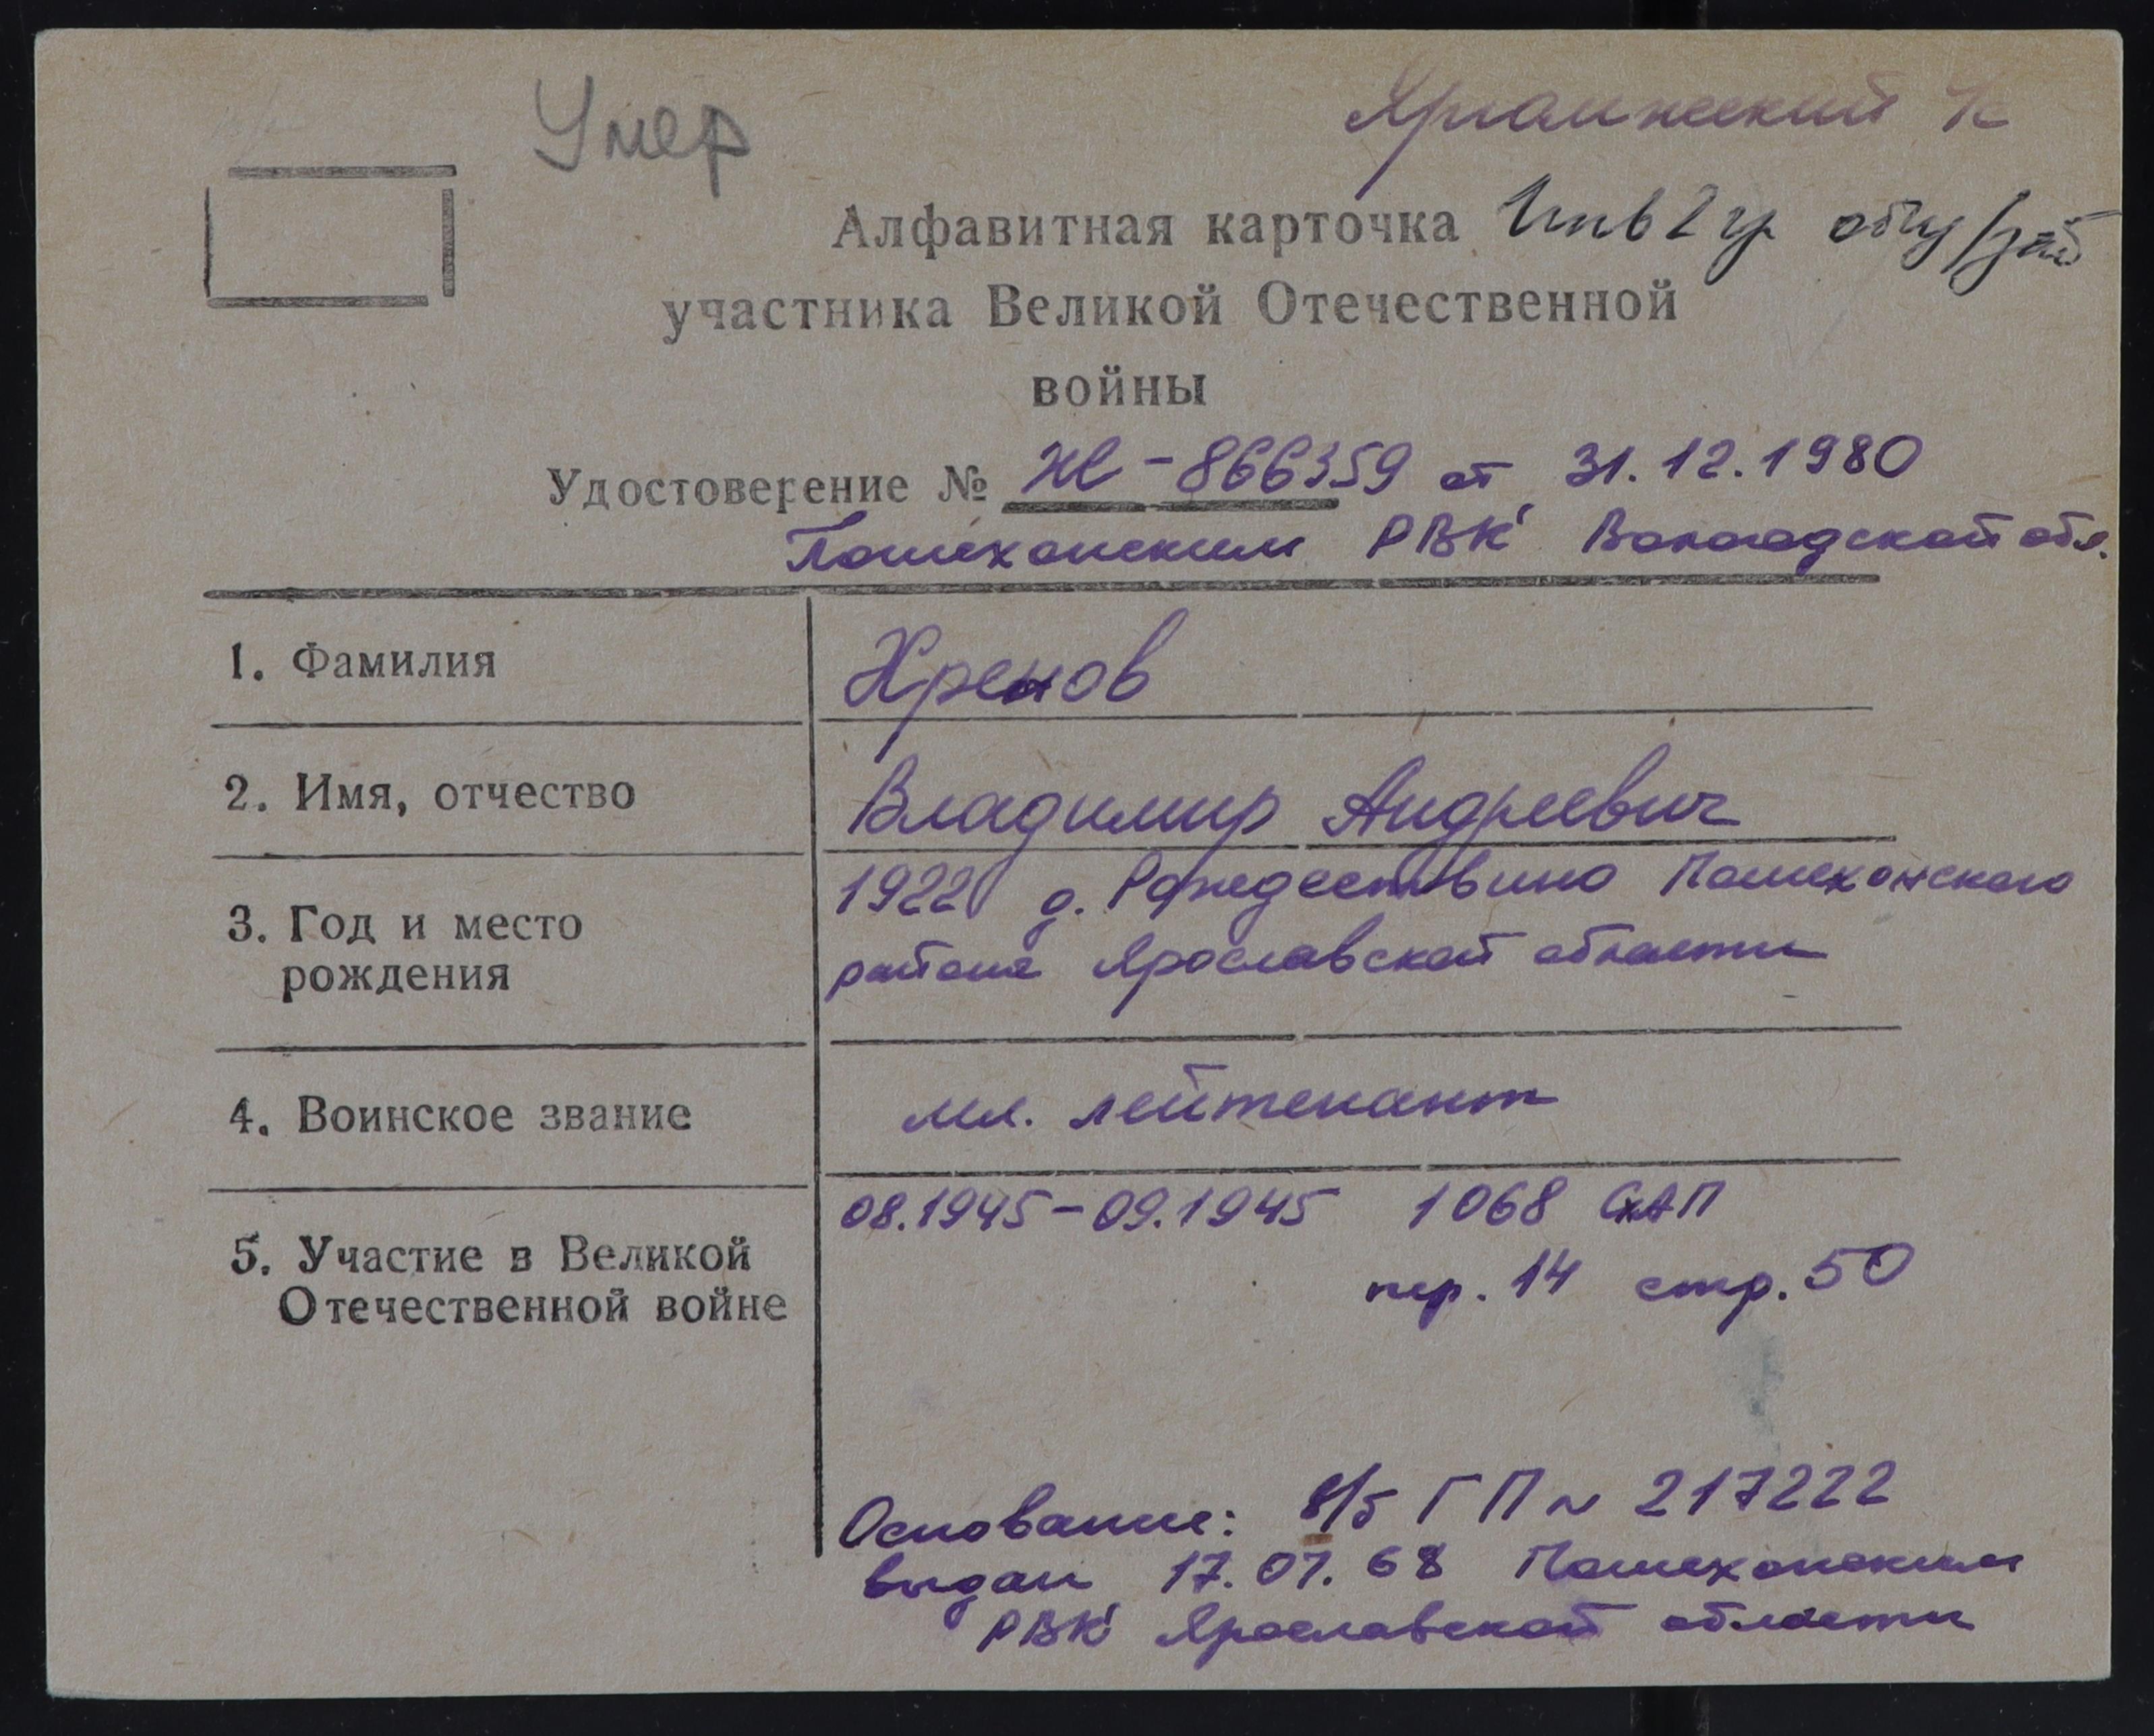 Умер
Алфавитная карточка Инв 2 гр
участника Великой Отечественной
войны
Удостоверение № Ж-866359 от 31.12.1980
Пошехонским РВК Вологодской обл.
1. Фамилия Хренов
2. Имя, отчество Владимир Андреевич
3. Год и место 1922 д. Рождествино Пошехонского
рождения района Ярославской области
4. Воинское звание мл. лейтенант
5. Участие в Великой 08.1945-09.1945 1068 САП
Отечественной войне пер. 14 стр. 50
Основание: в/б ГП № 217222
выдан 17.07.68 Пошехонским
РВК Ярославской области